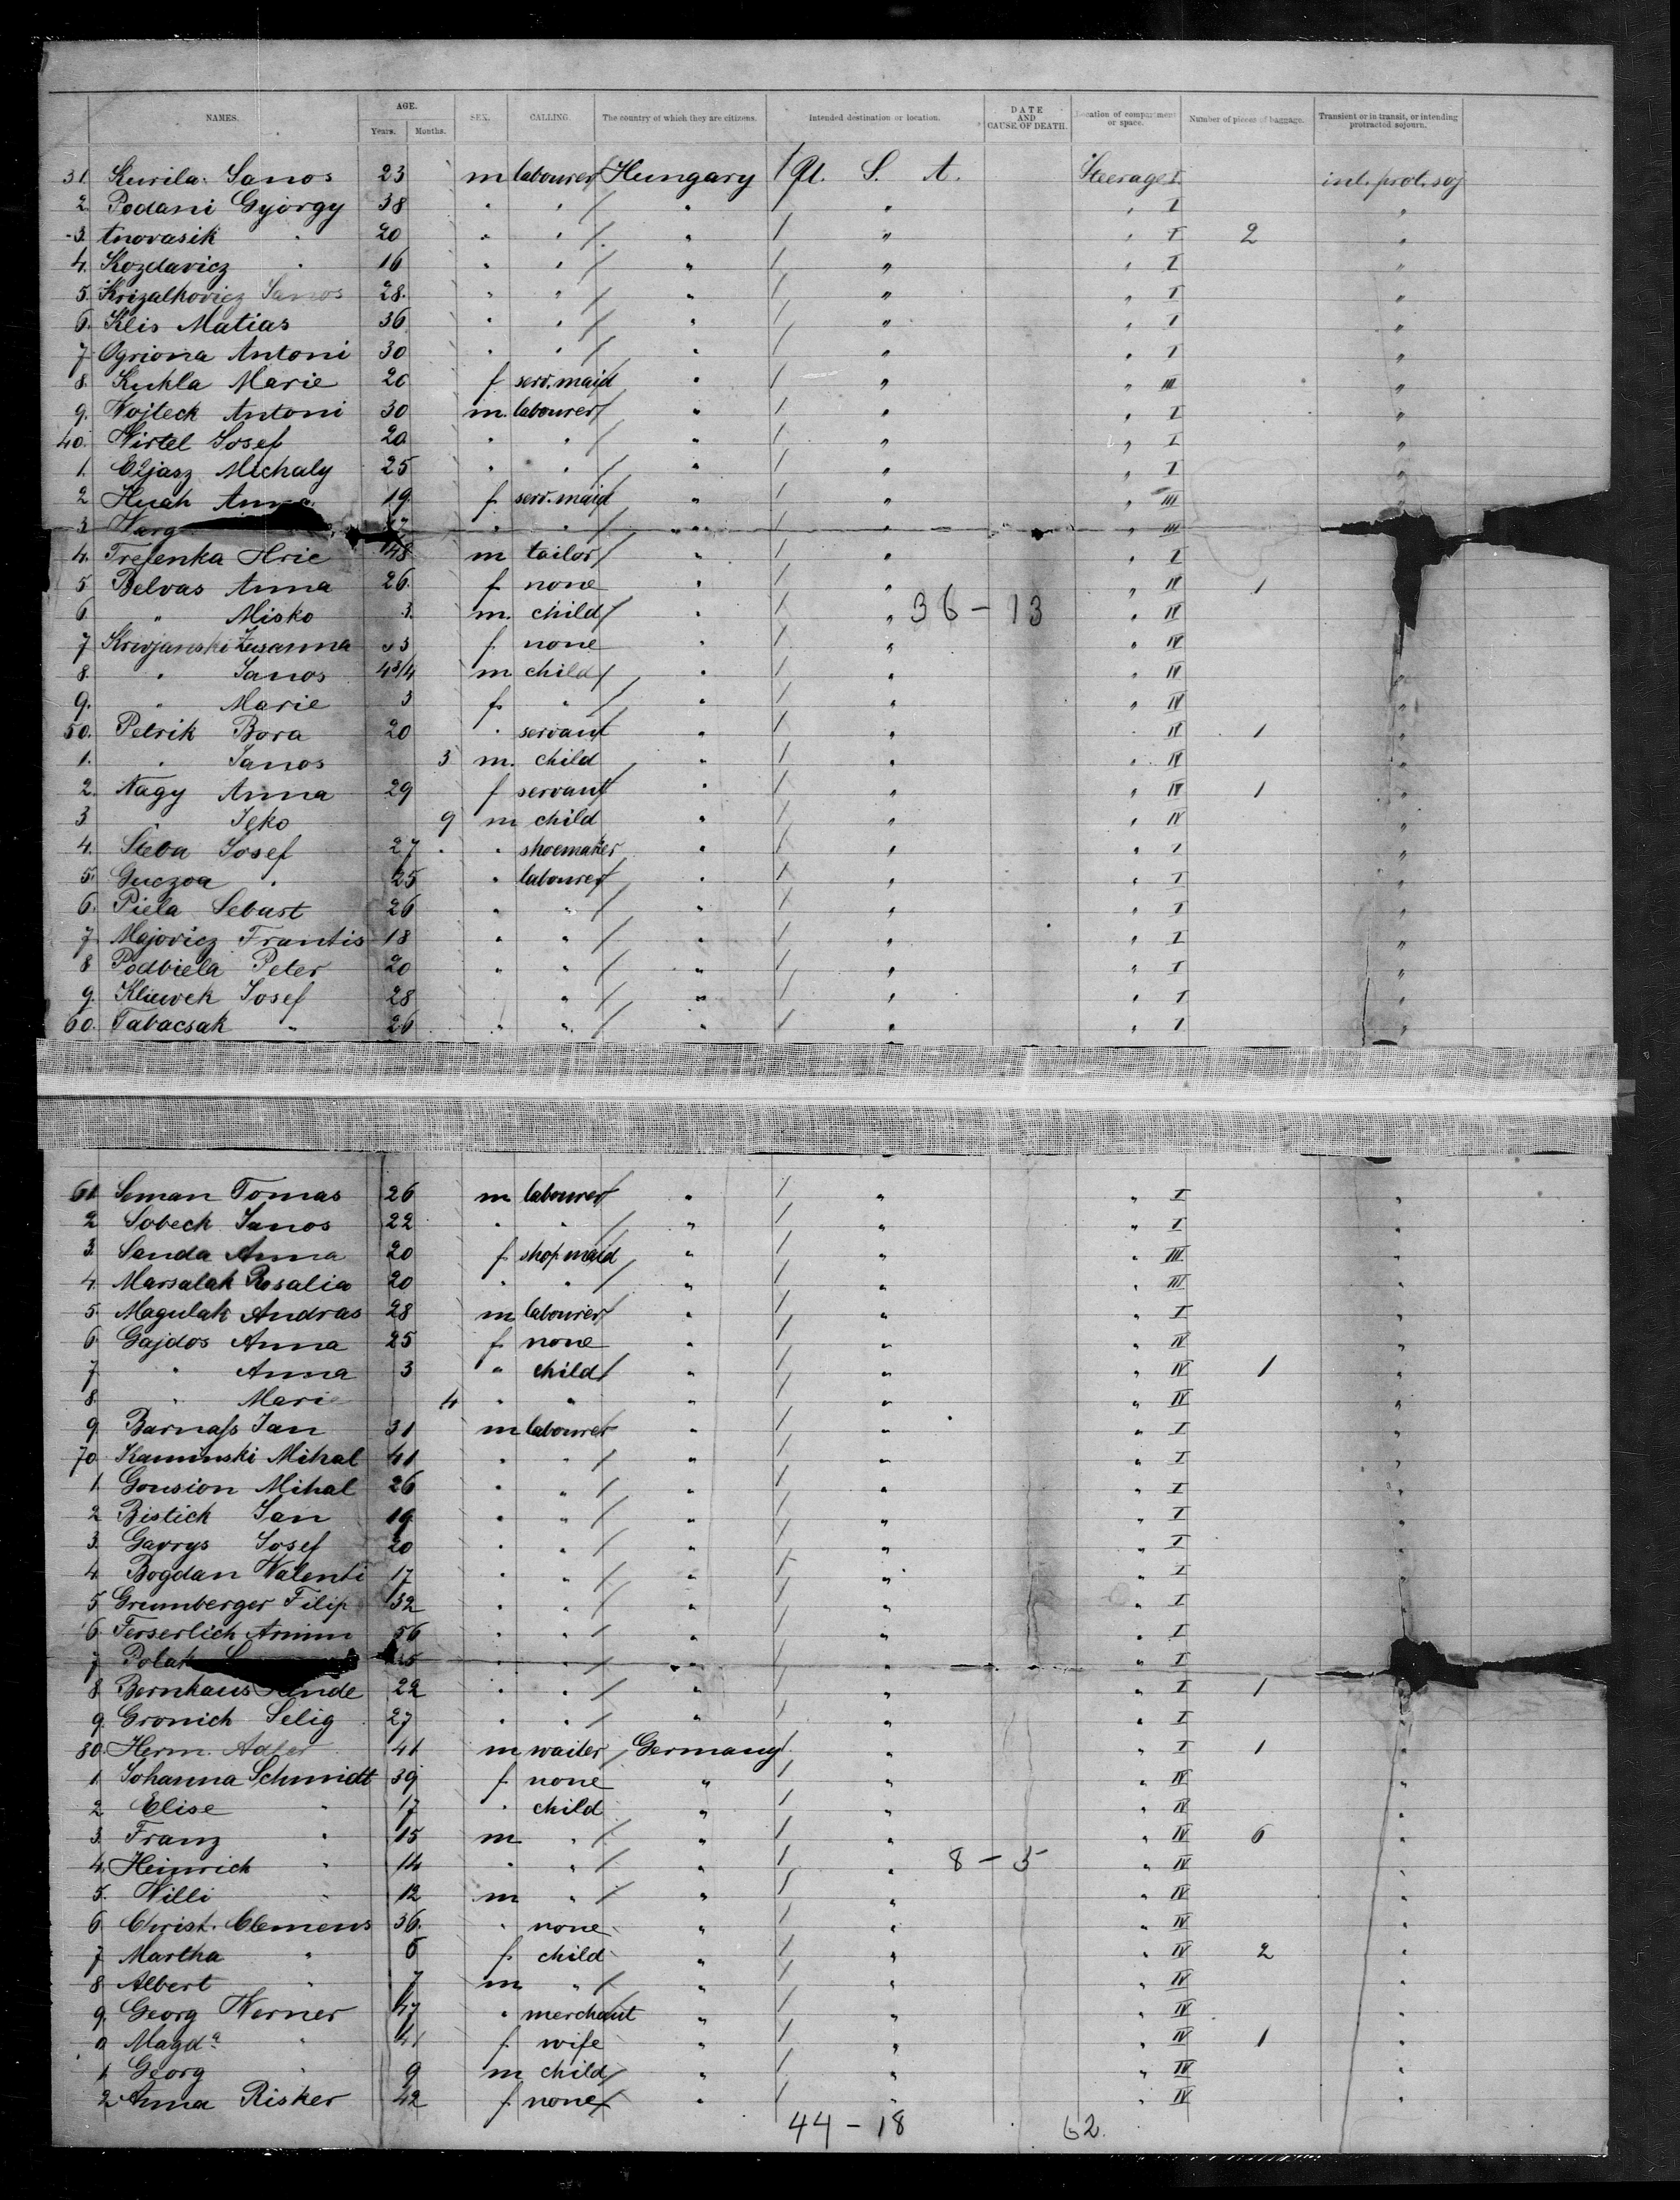 NAMES. AGE. Years. Months. SEX. CALLING. The country of which they are citizens. Intended destination or location. DATE AND CAUSE OF DEATH. Location of compartment or space. Number of pieces of baggage. Transient or in transit, or intending protracted sojourn.
31. Kurila Janos 23 m labourer Hungary U. S. A. Steerage I int. prot. soj
2. Podani György 38 " " " " " I "
3. " 20 " " " " " I 2 "
4. Kozdavicz " 16 " " " " " I "
5. Krizalkovicz Janos 28 " " " " " I "
6. Klis Matias 36 " " " " " I "
7 Ogriona Antoni 30 " " " " " I "
8. Kuhla Marie 20 f serv. maid " " " III "
9. Wojteck Antoni 30 m. labourer " " " I "
40. Wirtel Josef 20 " " " " " I "
1. Eljasz Michaly 25 " " " " " I "
2 Huah Anna 19 f serv. maid " " " III "
3 Warg " " " " " III
4. Trefenka Hrie 48 m tailor " " " I "
5 Belvas Anna 26 f none " " " IV 1 "
6. " Misko 3. m. child " " 36 - 13 " IV "
7 Krivjanski Zusanna 33 f none " " " IV "
8. " Janos 4 3/4 m child " " " IV "
9. " Marie 3 f " " " " IV "
50. Petrik Bora 20 " servant " " " IV 1 "
1. " Janos 3 m. child " " " IV "
2. Nagy Anna 29 f servant " " " IV 1 "
3 " Jeko 9 m child " " " IV "
4. Steba Josef 27 " shoemaker " " " I "
5. Guczoa " 25 " labourer " " " I "
6. Piela Sebast 26 " " " " " I "
7 Majovicz Frantis 18 " " " " " I "
8 Podbiela Peter 20 " " " " " I "
9. Kliewek Josef 28 " " " " I "
60. Tabacsak " 26 " " " " " I "
61 Seman Tomas 26 m labourer " " " I "
2 Sobeck Janos 22 " " " " " I "
3. Sanda Anna 20 f shop maid " " " III "
4. Marsalak Rosalia 20 " " " " " III "
5. Magulak Andras 28 m labourer " " " I "
6 Gajdos Anna 25 f none " " " IV "
7 " Anna 3 " child " " " IV 1 "
8. " Marie 4 " " " " " IV "
9 Barnass Jan 31 m labourer " " " I "
70 Kaminski Mihal 41 " " " " " I "
1. Gousion Mihal 26 " " " " " I "
2 Bistick Jan 19 " " " " " I "
3. Gavrys Josef 20 " " " " " I "
4 Bogdan Valenti 17 " " " " " I "
5 Grumberger Filip 32 " " " " " I "
6. Ferserlich Armin 56 " " " " " I "
7 Polak " " " " " I
8 Bernhaus 22 " " " " " I 1 "
9. Gronich Selig 27 " " " " " I "
80. Herm. Adler 41 m waiter Germany " " I 1 "
1. Johanna Schmidt 39 f none " " " IV "
2 Elise " 17 " child " " " IV "
3. Franz " 15 m " " " " IV 6 "
4. Heinrich " 14 " " " " 8 - 5 " IV "
5. Willi " 12 m " " " " IV "
6 Christ. Clemens 36. " none " " " IV "
7 Martha " 6 f child " " " IV 2 "
8 Albert " 7 m " " " " IV "
9. Georg Werner 47 " merchant " " " IV "
0 Magda " 41 f wife " " " IV 1 "
1 Georg " 9 m child " " " IV "
2 Anna Risker 42 f none " " " IV "
44 - 18 62.